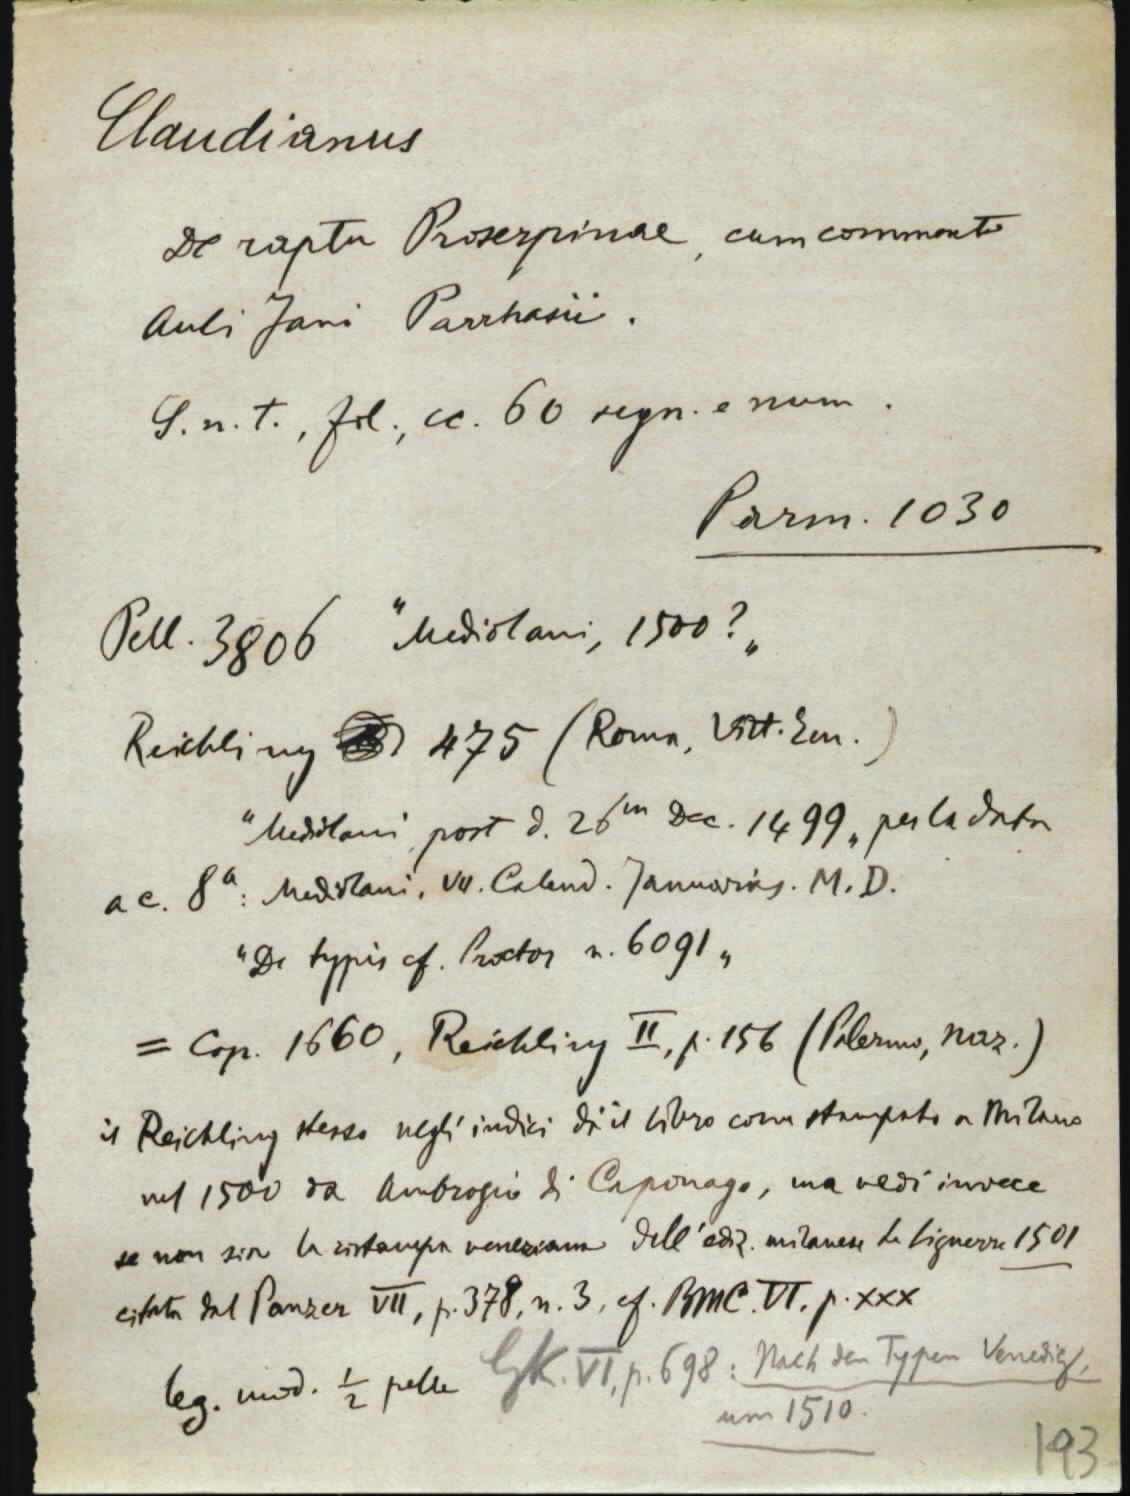 Claudianus
De raptu Proserpinae, cum commento
Auli Jani Parrhasii.
S. n. t., fol., cc. 60 segn. e num.
Parm. 1030
Pell. 3806 "Mediolani, 1500?"
Reichling 475 (Roma, Vitt. Em.)
"Mediolani, post d. 26m Dec. 1499" per la data
a c. 8a: Mediolani. VII. Calend. Januarias. M.D.
"De typis cf. Proctor n. 6091"
= Cop. 1660, Reichling II, p. 156 (Palermo, Naz.)
il Reichling stesso negli indici dà il libro come stampato a Milano
nel 1500 da Ambrogio di Caponago, ma vedi invece
se non sia la ristampa veneziana dell'ediz. milanese de Signerre 1501
citata dal Panzer VII, p. 378, n. 3, cf. BMC. VI. p. xxx
leg. mod. 1/2 pelle GK. VI, p. 698: Nach den Typen Venedig,
um 1510.
193